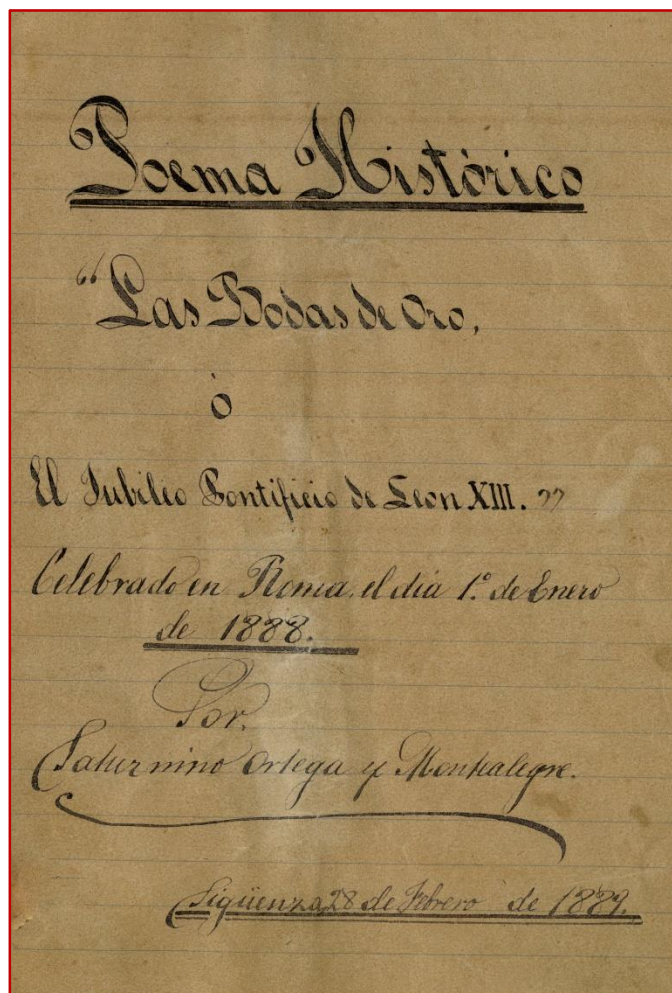 Poema Histórico
“Las Bodas de Oro,
ò
El Jubileo Pontificio de Leon XIII. ”
Celebrado en Roma, el dia 1.º de Enero
de 1888.
Por.
Saturnino Ortega y Montealegre.
Sigüenza 28 de Febrero de 1889.